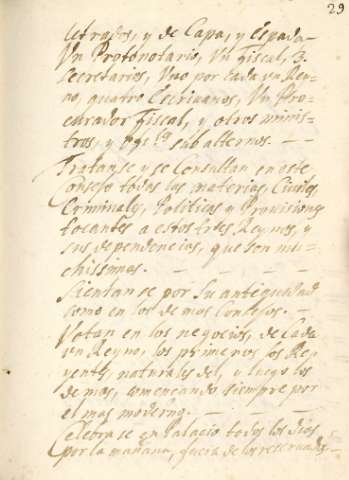 29
Letrados, y de Capa, y espada
Un Protonotario, Un Fiscal, 3.
Secretarios, Uno por Cada un Rey-
no, quatro Escriuanos, Un Pro-
curador Fiscal, y otros minis-
tros, y ofi.les subalternos. —
Tratanse y se Consultan en este
Consejo todas las materias, Ciuiles,
Criminales, Politicas y Prouisiones
tocantes a estos tres Reynos, y
sus dependencias, que son mu-
chissimas. — — —
Sientanse por su antiguedad
como en los demas Consejos. —
Votan en los negocios, de Cada
un Reyno, los primeros los Rey
naturales del, y luego los
demas, comencando siempre por
el mas moderno. — — —
Celebrase en Palacio todos los dias
por la mañana, fuera de los reseruados